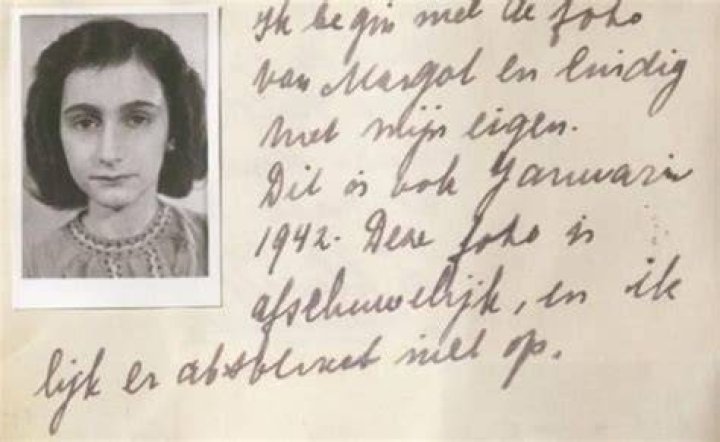 Ik begin met de foto
van Margot en eindig
met mijn eigen.
Dit is ook Januari
1942. Deze foto is
afschuwelijk, en ik
lijk er absoluut niet op.